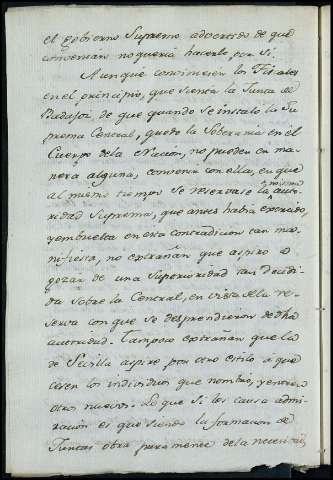 el gobierno Supremo advertido de que
conversan no queria hacerlo por sí.
Aunque convinieron los Fiscales
en el principio, que sienta la Junta de
Badajoz, de que quando se instaló la Su
prema Central, quedo la Soberania en el
Cuerpo de la Nacion, no pueden en ma
nera alguna, convenir con ella, en que
al mismo tiempo se reservase la misma auto
ridad Suprema, que antes habia exercido,
y embuelta en esta contradicion tan ma
nifiesta, no extrañan que aspire a
gozar de una Superioridad tan decidi
da sobre la Central, en vista de la re
serva con que se desprendieron de dha
autoridad. Tampoco extrañan que la
de Sevilla aspire por otro estilo a que
cesen los individuos que nombró, y entren
otros nuevos. Lo que si les causa admi
racion es que siendo la formacion de
Juntas obra puramente de la necesidad,